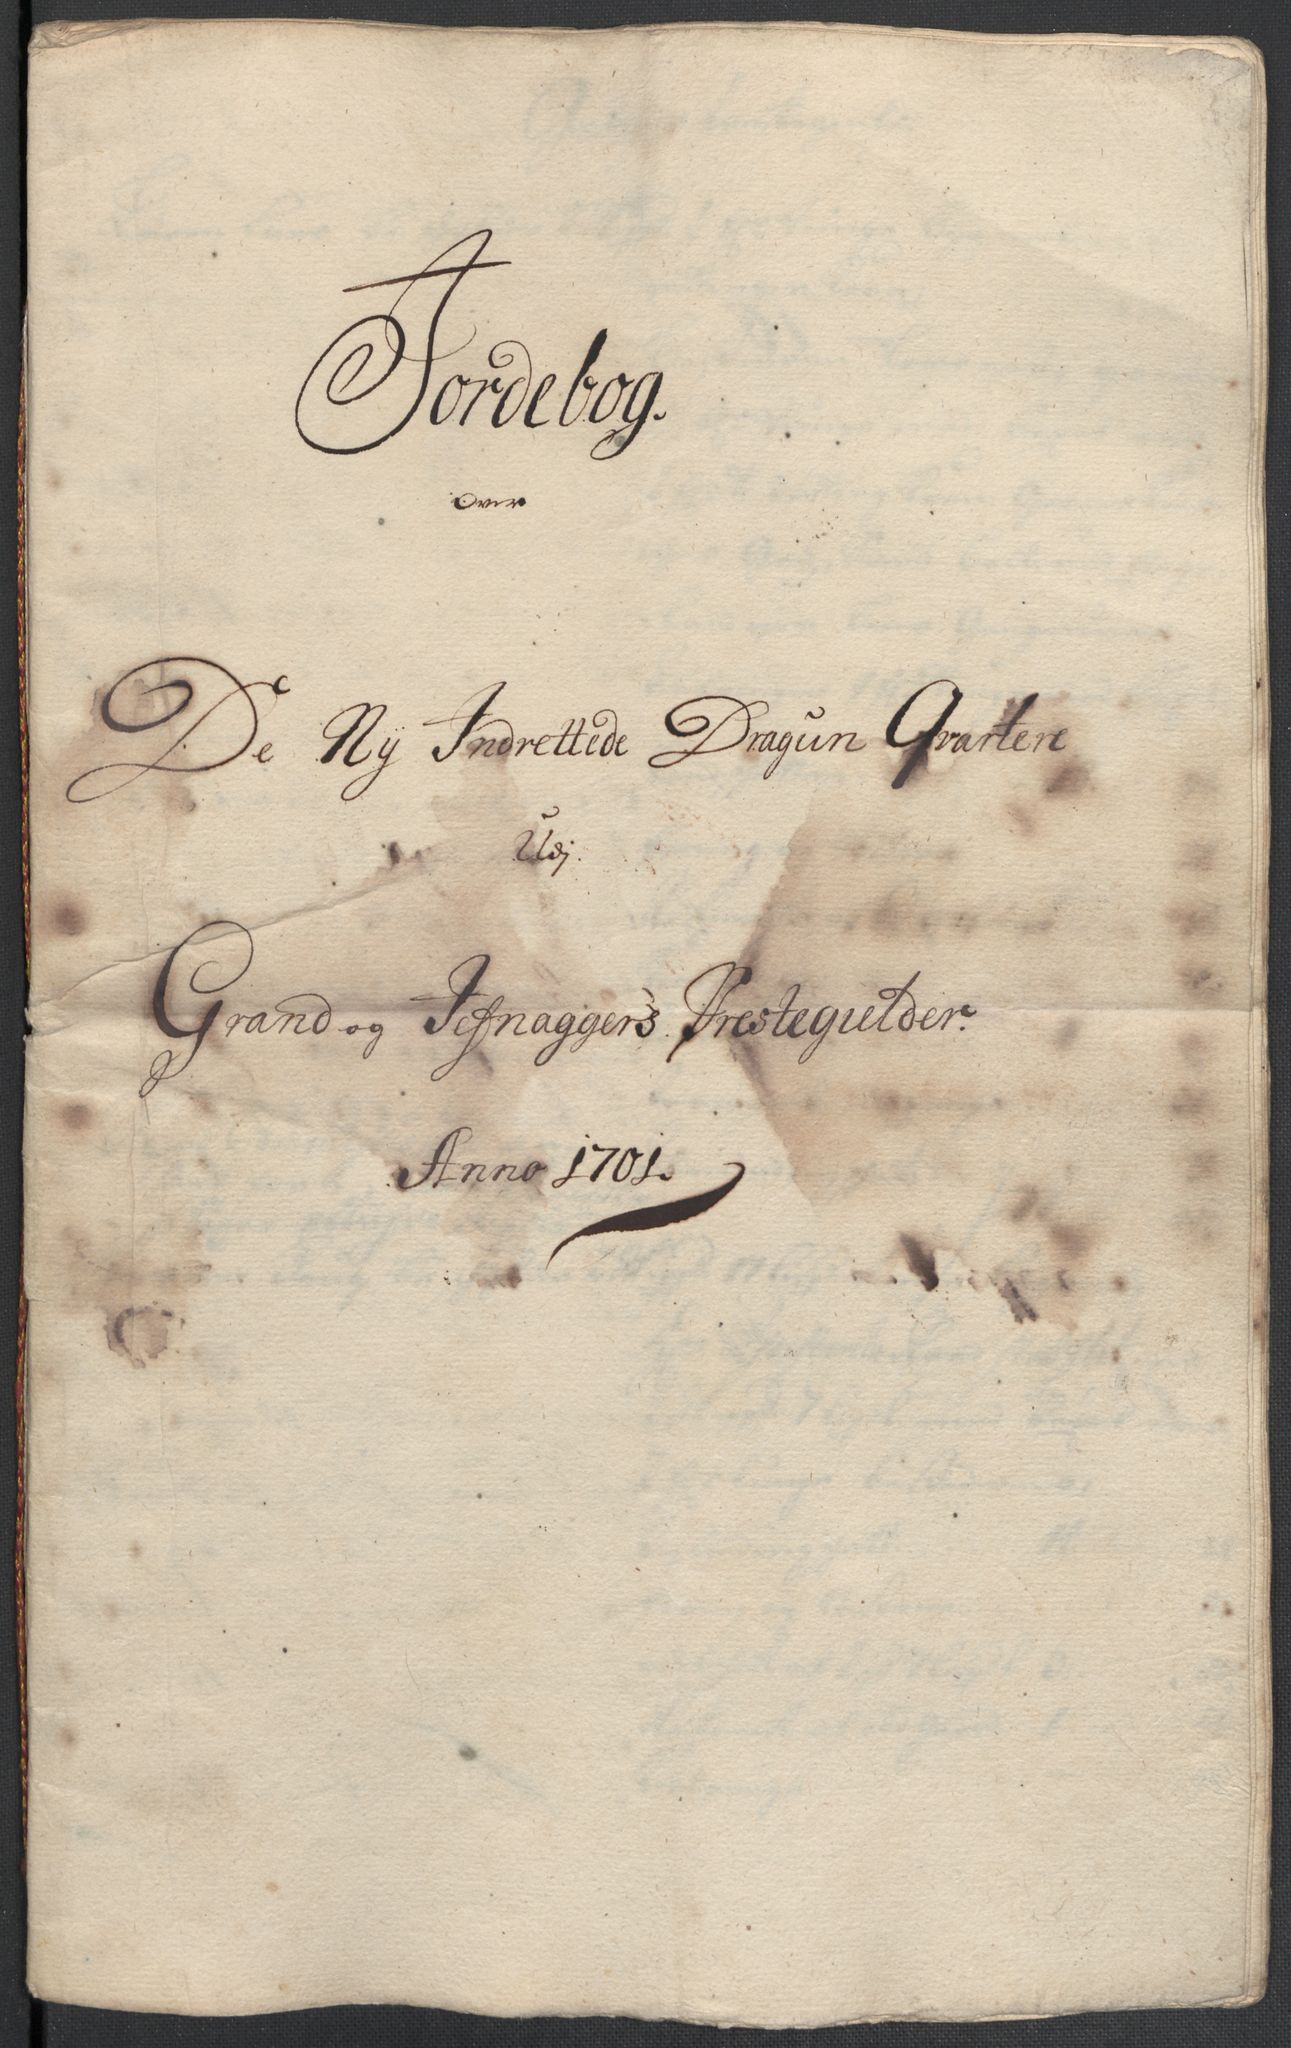 Jordebog.
Over
De Nÿ Indrettede Dragun Qvartere
Udj
Grand og Jefnaggers Prestegielder.
Anno 1701.